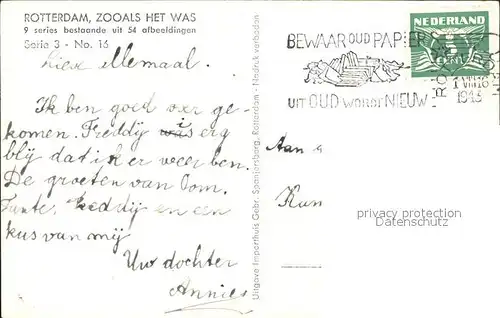 ROTTERDAM, ZOOALS HET WAS
9 series bestaande uit 54 afbeeldingen
Serie 3 - No. 16
Lieve Allemaal.
Ik ben goed over ge-
komen. Freddy is erg
blij dat ik er weer ben.
De groeten van Oom.
Tante, Freddy en een
kus van mij
Uw dochter
Annie
Uitgave Importhuis Gebr. Spanjersberg, Rotterdam - Nadruk verboden
BEWAAR OUD PAPIER
UIT OUD WORDT NIEUW
NEDERLAND
5
CENT
1943
Aan
privacy protection
Datenschutz